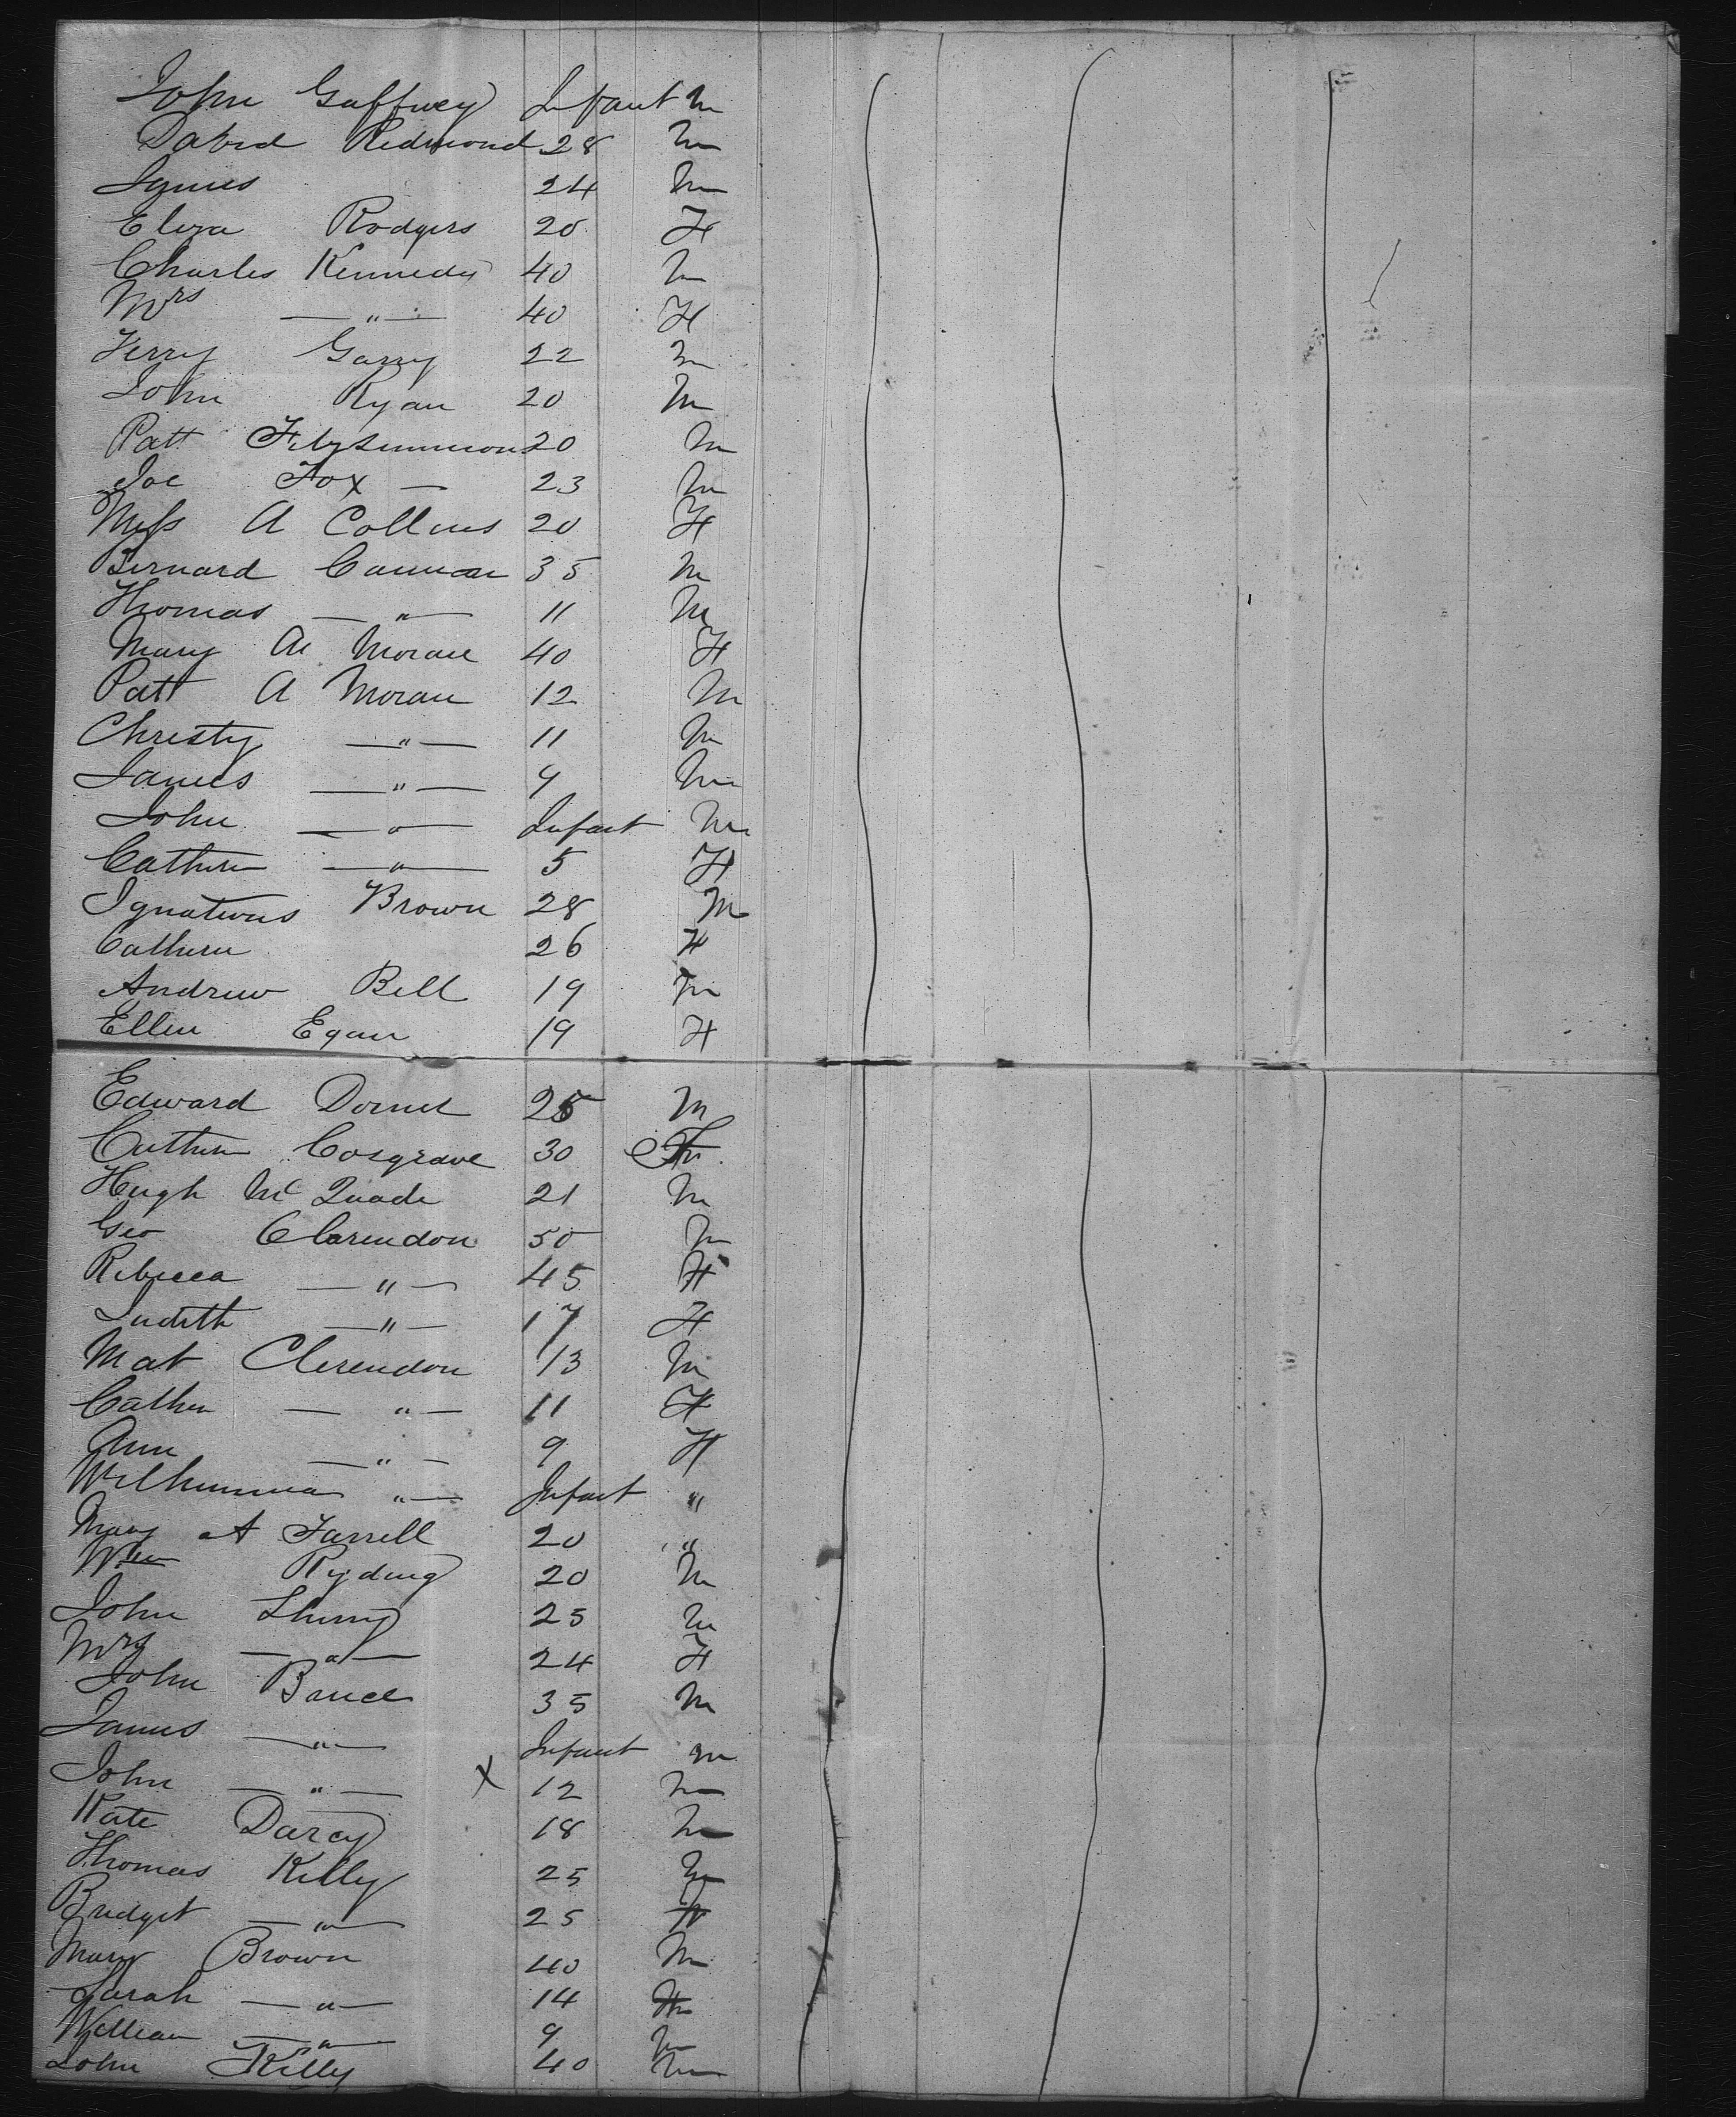 John Gaffney Infant M
David Redmond 28 M
James 24 M
Eliza Rodgers 20 F
Charles Kennedy 40 M
Mrs — " — 40 F
Garry 22 M
John Ryan 20 M
Patt Fitzsimmon 20 M
Joe Fox — 23 M
Miss A Collins 20 F
Bernard Cannon 35 M
Thomas — " — 11 M
Mary A Moran 40 F
Patt A Moran 12 M
Christy — " — 11 M
James — " — 9 M
John — " — Infant M
Cathern — " — 5 F
Ignatious Brown 28 M
Cathern 26 F
Andrew Bell 19 M
Ellen Egan 19 F
Edward 25 M
Cathern Cosgrave 30 F
Hugh Mc Quade 21 M
Geo Clarendon 50 M
Rebecca — " — 45 F
Judith — " — 17 F
Mat Clerendon 13 M
Cathen — " — 11 F
Ann — " — 9 F
Wilhemina " — Infant "
Mary A Farrell 20 "
Wm Ryding 20 M
John 25 M
Mrs — " — 24 F
John 35 M
James — " — Infant M
John — " — x 12 M
Kate Darcy 18 M
Thomas Killy 25 M
Bridget — " — 25 F
Mary Brown 40 M
Sarah — " — 14
William — " — 9 M
John Killy 40 M